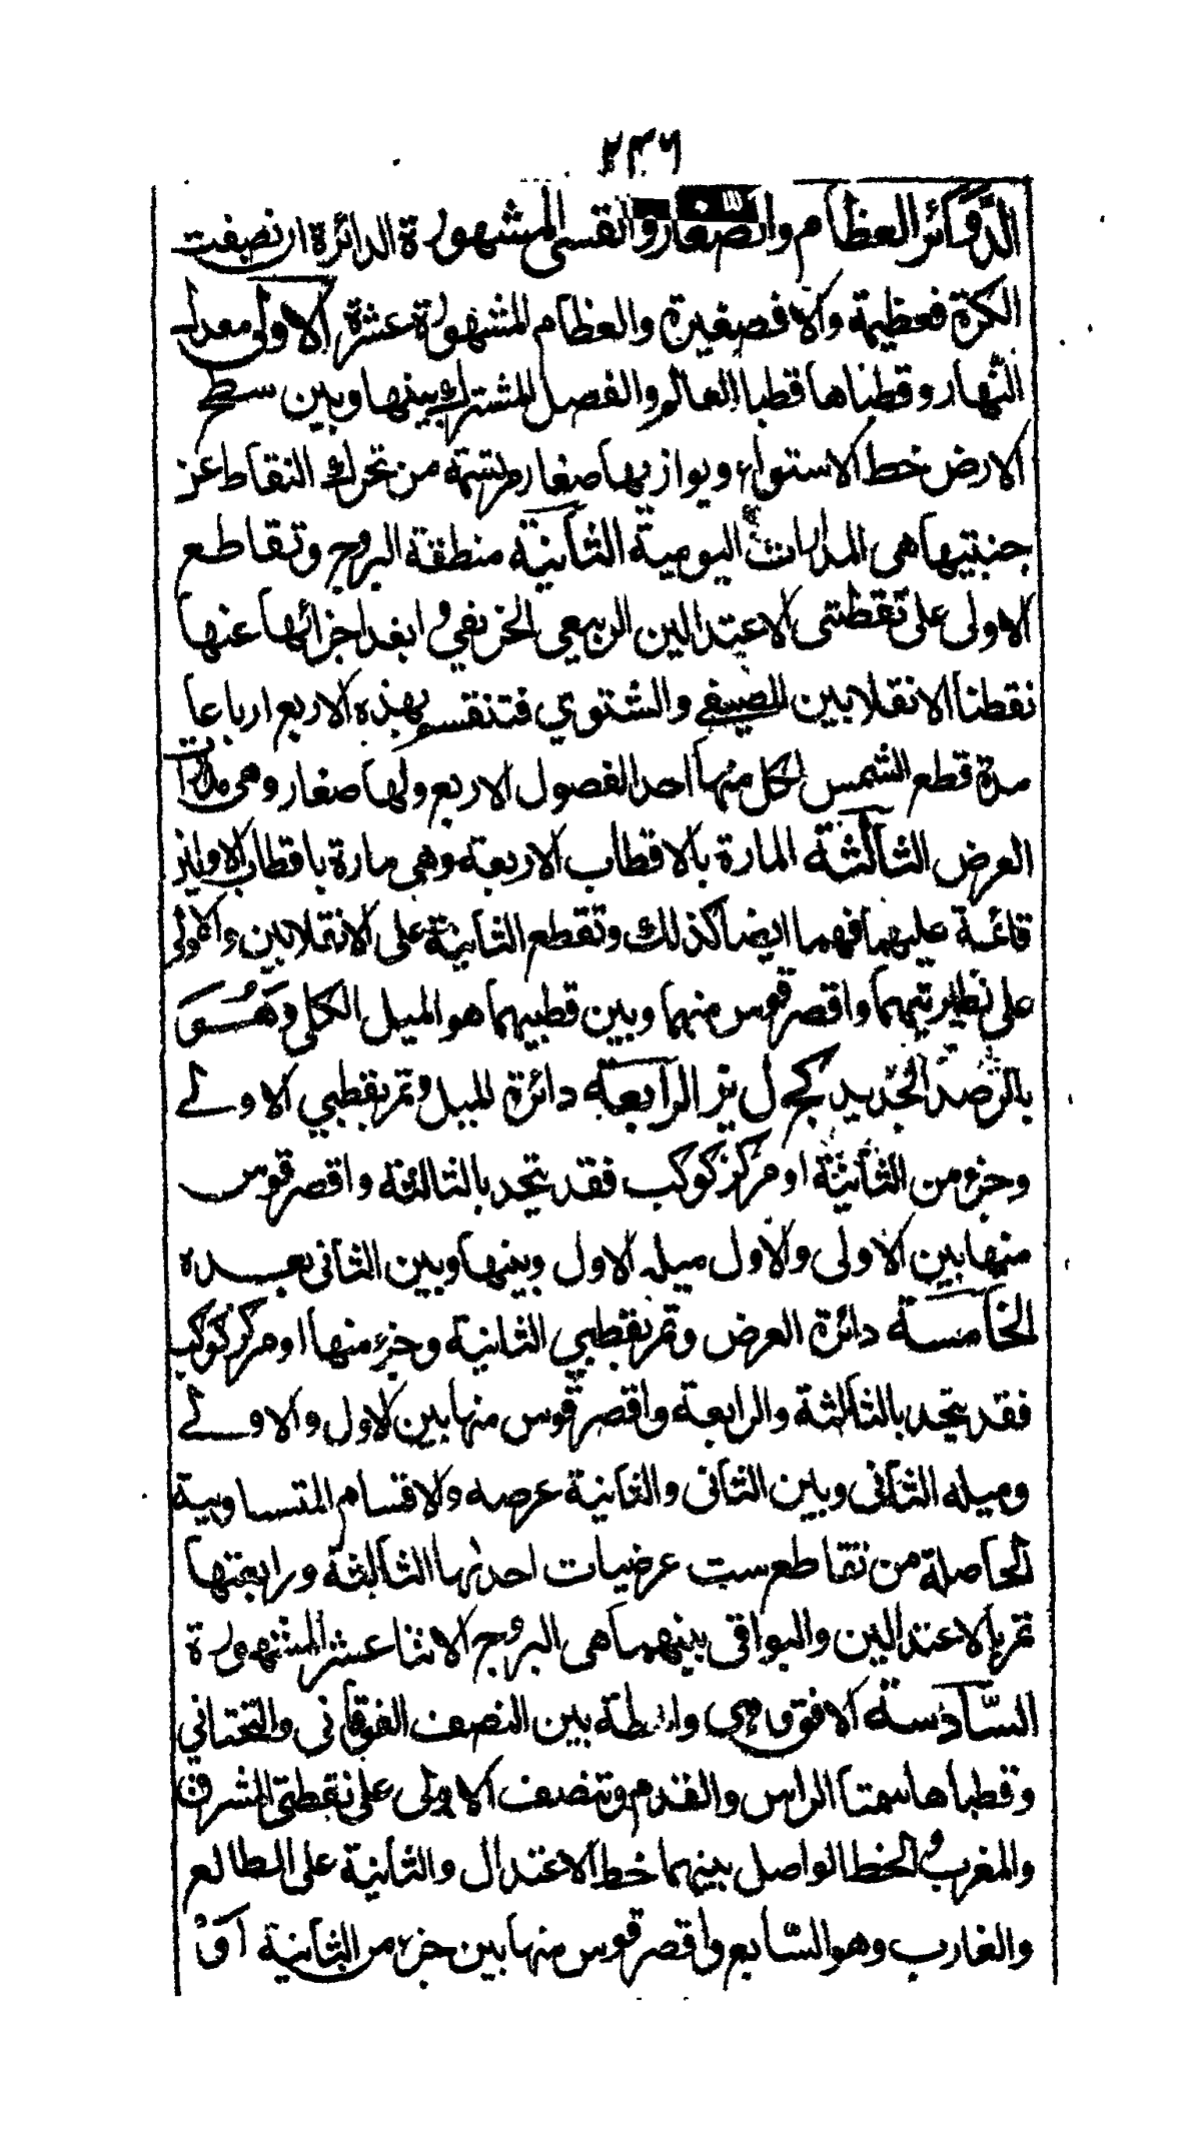 ٢٣٦
الدوائر العظام والصغار والقسي المشهورة الدائرة ان نصفت
الكرة فعظيمة والا فصغيرة والعظام المشهورة عشرة الاولى معدل
النهار وقطباها قطبا العالم والفصل المشترك بينها وبين سطح
الارض خط الاستواء ويوازيها صغار مرتسمة من تحرك النقاط عن
جنبتيها هى المدارات اليومية الثانية منطقة البروج وتقاطع
الاولى على نقطتى الاعتدالين الربيعي الخريفي وابعد اجزائها عنها
نقطتا الانقلابين الصيفي والشتوي فتنقسم بهذه الاربع ارباعا
مدة قطع الشمس لكل منها احد الفصول الاربع ولها صغار وهى مدارات
العرض الثالثة المارة بالاقطاب الاربعة وهى مارة باقطاب الاوليين
قائمة عليهما فهما ايضا كذلك وتقطع الثانية على الانقلابين والاولى
على نظيرتيهما واقصر قوس منهما وبين قطبيهما هو الميل الكلى وهو
بالرصد الجديد كج ل يز الرابعة دائرة الميل وتمر بقطبي الاولى
وجزء من الثانية او مركز كوكب فقد يتحد بالثالثة واقصر قوس
منها بين الاولى والاول ميله الاول وبينها وبين الثانى بعده
الخامسة دائرة العرض وتمر بقطبي الثانية وجزء منها او مركز كوكب
فقد يتحد بالثالثة والرابعة واقصر قوس منها بين الاول والاولى
وميله الثانى وبين الثانى والثانية عرضه والاقسام المتساوية
الحاصلة من تقاطع ست عرضيات احديها الثالثة ورابعتها
تمر بالاعتدالين والبواقى بينهما هى البروج الاثنا عشر المشهورة
السادسة الافق وهى واسطة بين النصف الفوقانى والتحتانى
وقطباها سمتا الراس والقدم وتنصف الاولى على نقطتى المشرق
والمغرب والخط الواصل بينهما خط الاعتدال والثانية على الطالع
والغارب وهو السابع واقصر قوس منها بين جزء من الثانية او